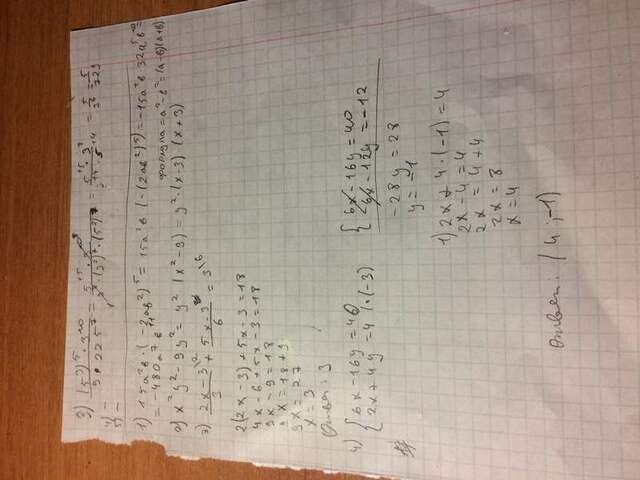 3) (5³)⁵ · 3²⁰ / 9 · 225⁷ = = 5/729
4) =
5) =
1) 15a²в · (-2aв²)⁵ = 15a²в (-(2aв²)⁵) = -15a²в 32a⁵в¹⁰ =
= -480a⁷в¹¹
формула = a²-в² = (a-в)(a+в)
x²y² - 9y² = y² (x²-9) = y² · (x-3) · (x+3)
2x-3\2 / 3 + 5x-3 / 6 = 3\6
2(2x-3) + 5x-3 = 18
4x-6+5x-3=18
9x-9=18
9x = 18+9
9x = 27
x = 3
Ответ: 3
4) { 6x-16y=40
{ 2x+4y=4 | · (-3)
{ 6x-16y=40
6x-12y=-12
-28y = 28
y = -1
1) 2x+4·(-1)=4
2x-4=4
2x = 4+4
2x = 8
x = 4
Ответ: (4;-1)